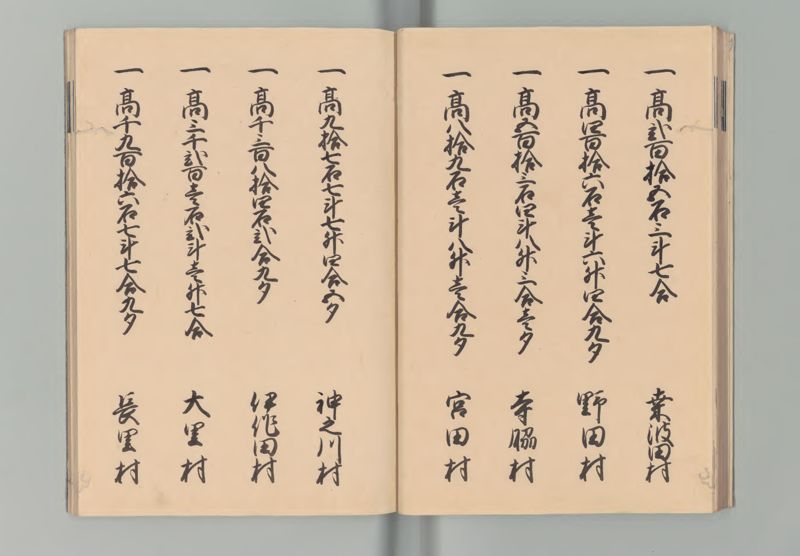 一 高弐百拾五石三斗七合 桑波田村
一 高四百拾六石壱斗六升四合九夕 野田村
一 高五百拾三石四斗八升三合壱夕 寺脇村
一 高八拾九石壱斗八升壱合九夕 宮田村
一 高九拾七石七斗七升四合五夕 神之川村
一 高千三百八拾四石弐合九夕 伊作田村
一 高三千弐百壱石弐斗壱升七合 大里村
一 高千九百拾六石七斗七合九夕 長里村